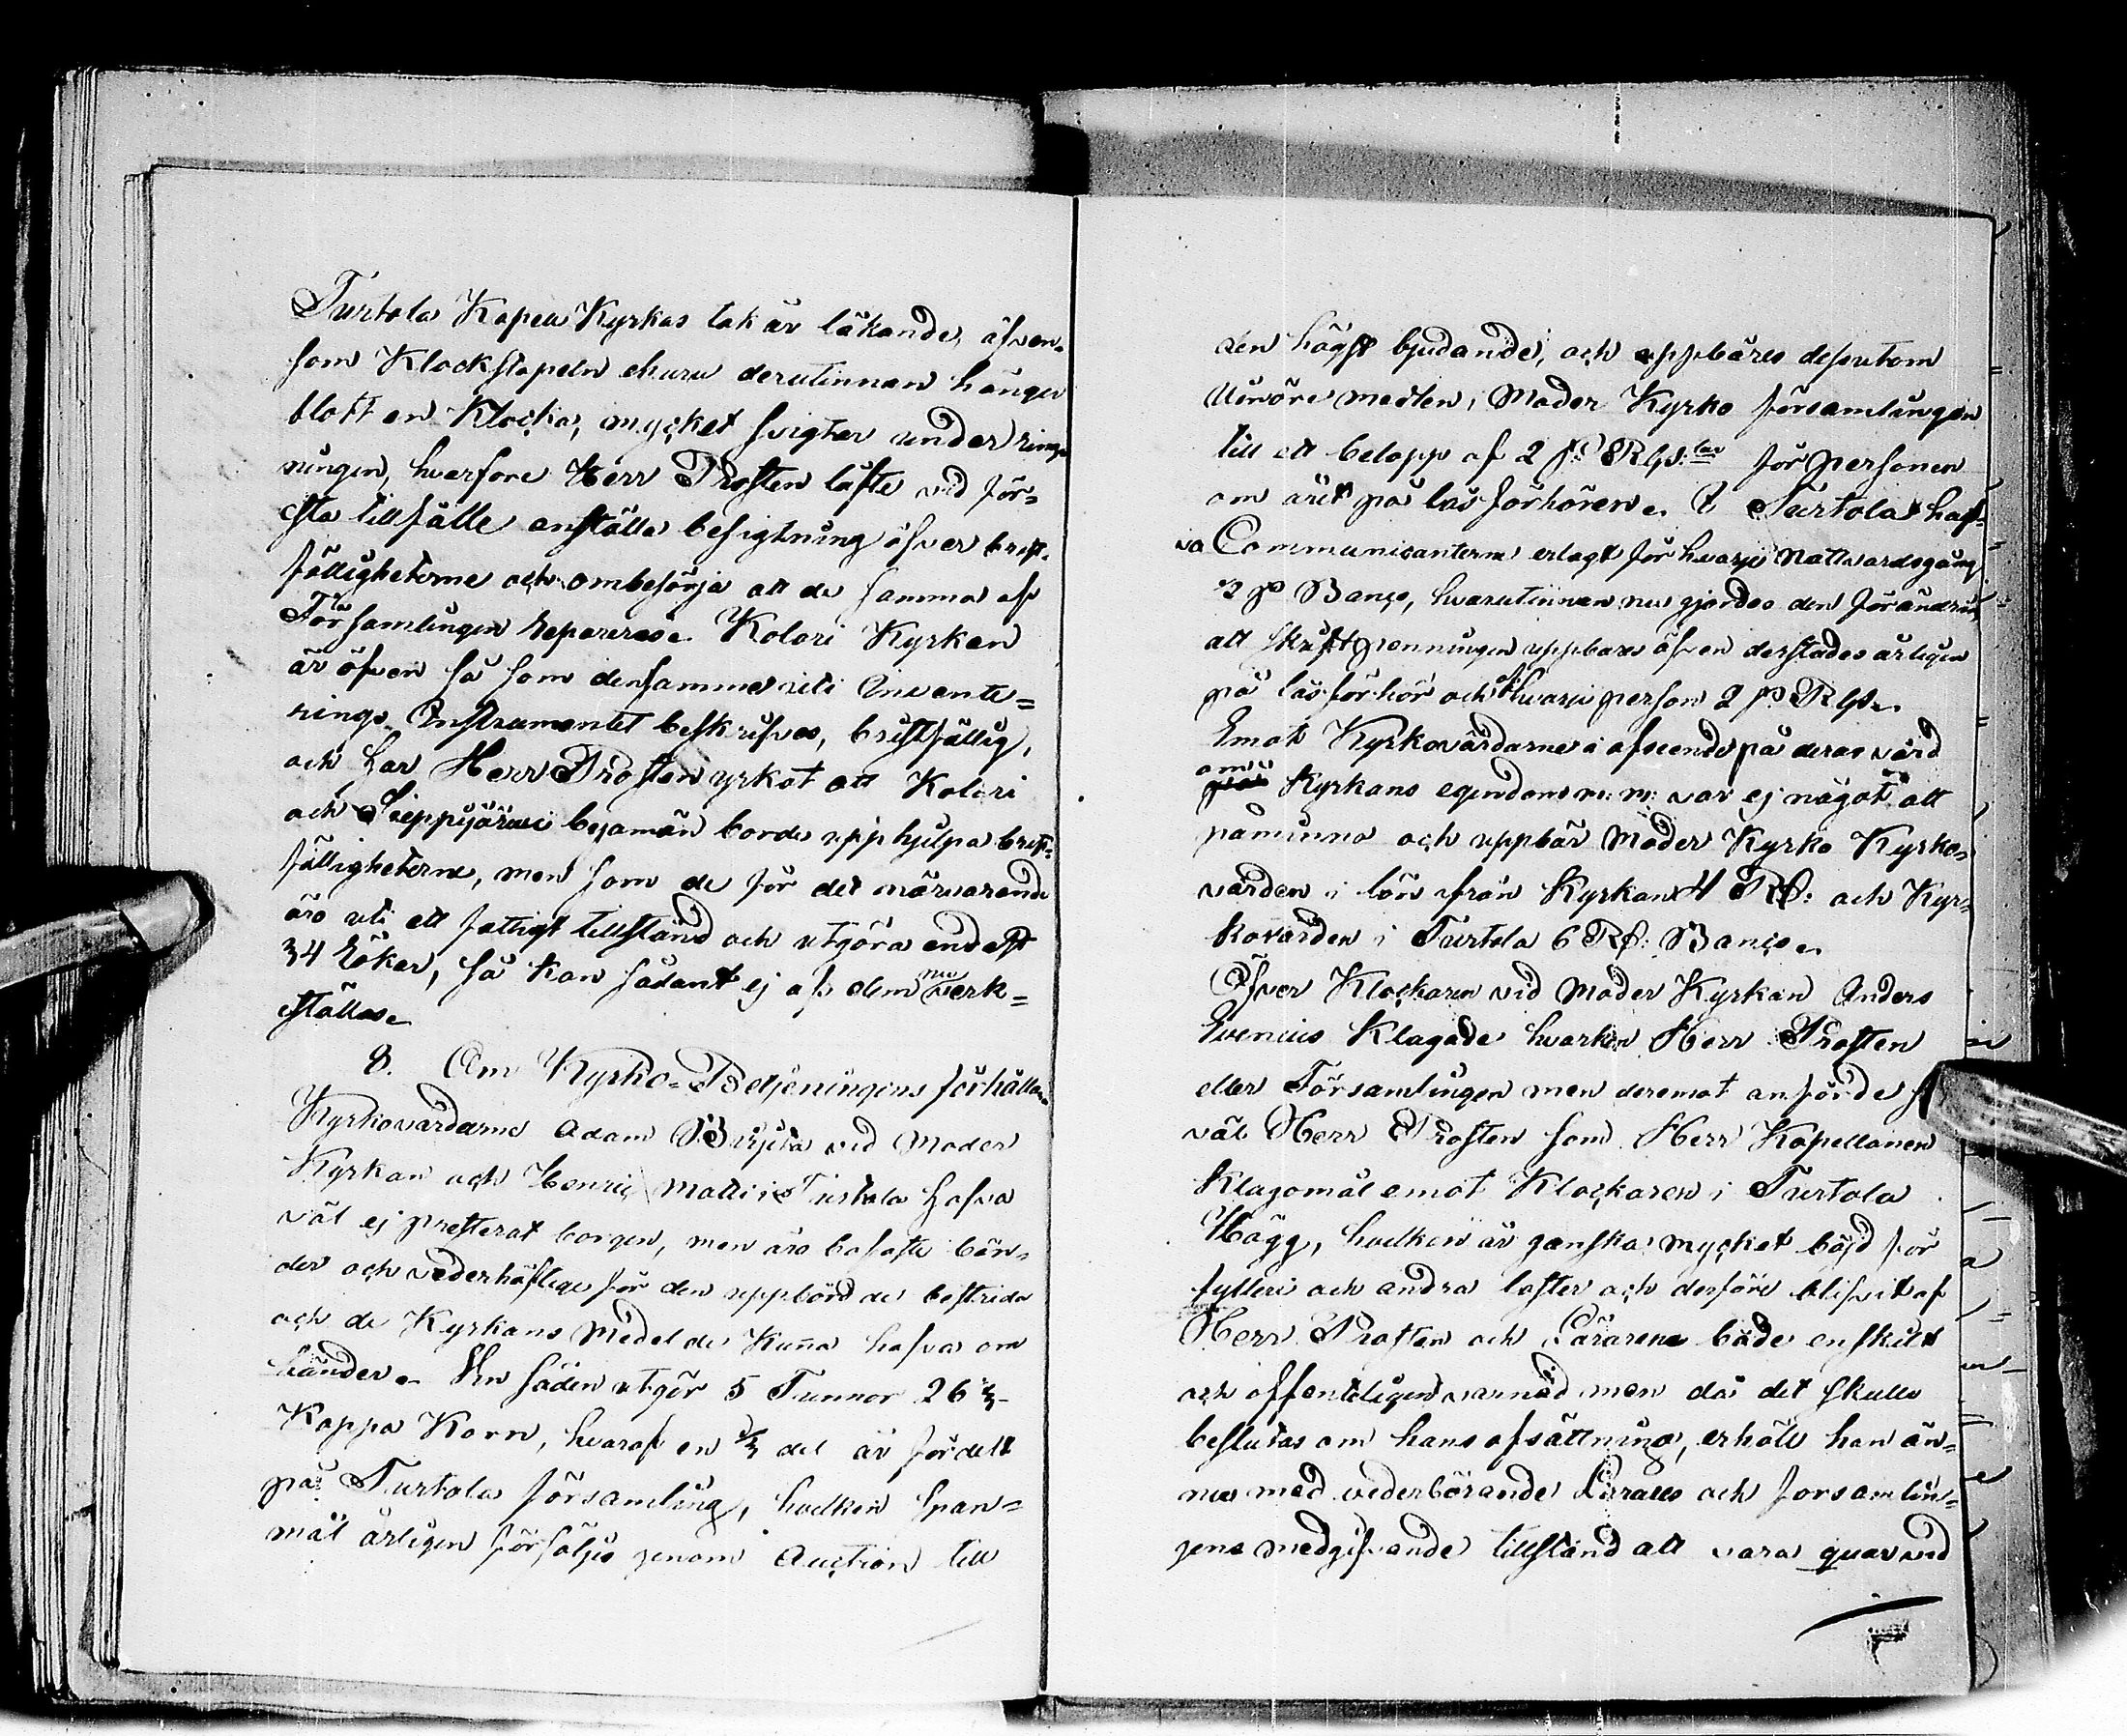 Turtola Kapell Kyrkas tak är läkande, äfven-
som Klockstapeln ehuru derutinnan hänger
blott en Klocka, mycket svigtar under ring-
ningen, hvarfore Herr Prosten låfte vid för-
sta tillfälle anställa besigtning öfver brist-
fälligheterne och ombesörja att de samma af
Församlingen repareras. Kolari Kyrkan
är öfven så som densamma uti Invente-
rings-Instrumentet beskrifves, bristfällig,
och har Herr Prosten yrkat att Kolari
och Sieppijärvi byamän borde upphjelpa brist-
fälligheterne, men som de för det närvarande
äro uti ett fattigt tillstånd och utgöra endast
34 Rökar, så kan sådant ej af dem nu verk-
ställas.
8. Om Kyrko-Betjeningens förhållan-
Kyrkovärdarne Adam vid Moder
Kyrkan och Henric Matti i Turtola hafva
väl ej presterat borgen, men äro besatte bön-
der och vederhäftige för den uppbörd de bestrida
och de Kyrkans Medel de Kunna hafva om
händer. säden utgör 5 Tunnor 26 2/3
Kappa Korn, hvaraf en 1/3 del är fördelt
på Turtola församling, hvilken span-
mål årligen försäljes genom Auction till
den högst bjudande, och uppbäres dessutom
medlen i Moder Kyrko församlingen
till ett belopp af 2 s. RGs. för personen
om året på läsförhören. I Turtola haf-
va Communicanterne erlagt för hvarje Nattvardsgång
2 s Banco, hvarutinnan nu gjordes den förändring
att Skriftpenningen uppbäres äfven derstädes årligen
på läsförhör och af hvarje person 2 s RGs.
Emot Kyrkovärdarne i afseende på deras vård
om Kyrkans egendom m: m: var ej något att
påminna och uppbär Moder Kyrko Kyrko-
värden i lön ifrån Kyrkan 4 Rd: och Kyr-
kovärden i Turtola 6 Rd: Banco.
Öfver Klockaren vid Moder Kyrkan Anders
Evenius Klagade hvarken Herr Prosten
eller Församlingen men deremot anförde
väl Herr Prosten som Herr Kapellanen
Klagomål emot Klockaren i Turtola
Hägg, hvilken är ganska mycket böjd för
fylleri och andra laster och derföre blifvit af
Herr Prosten och Lärarene både enskilt
och offenteligen varnad men då det skulle
beslutas om hans afsättning, erhöll han än-
nu med vederbörande Lärares och församlin-
gens medgifvande tillstånd att vara quar vid